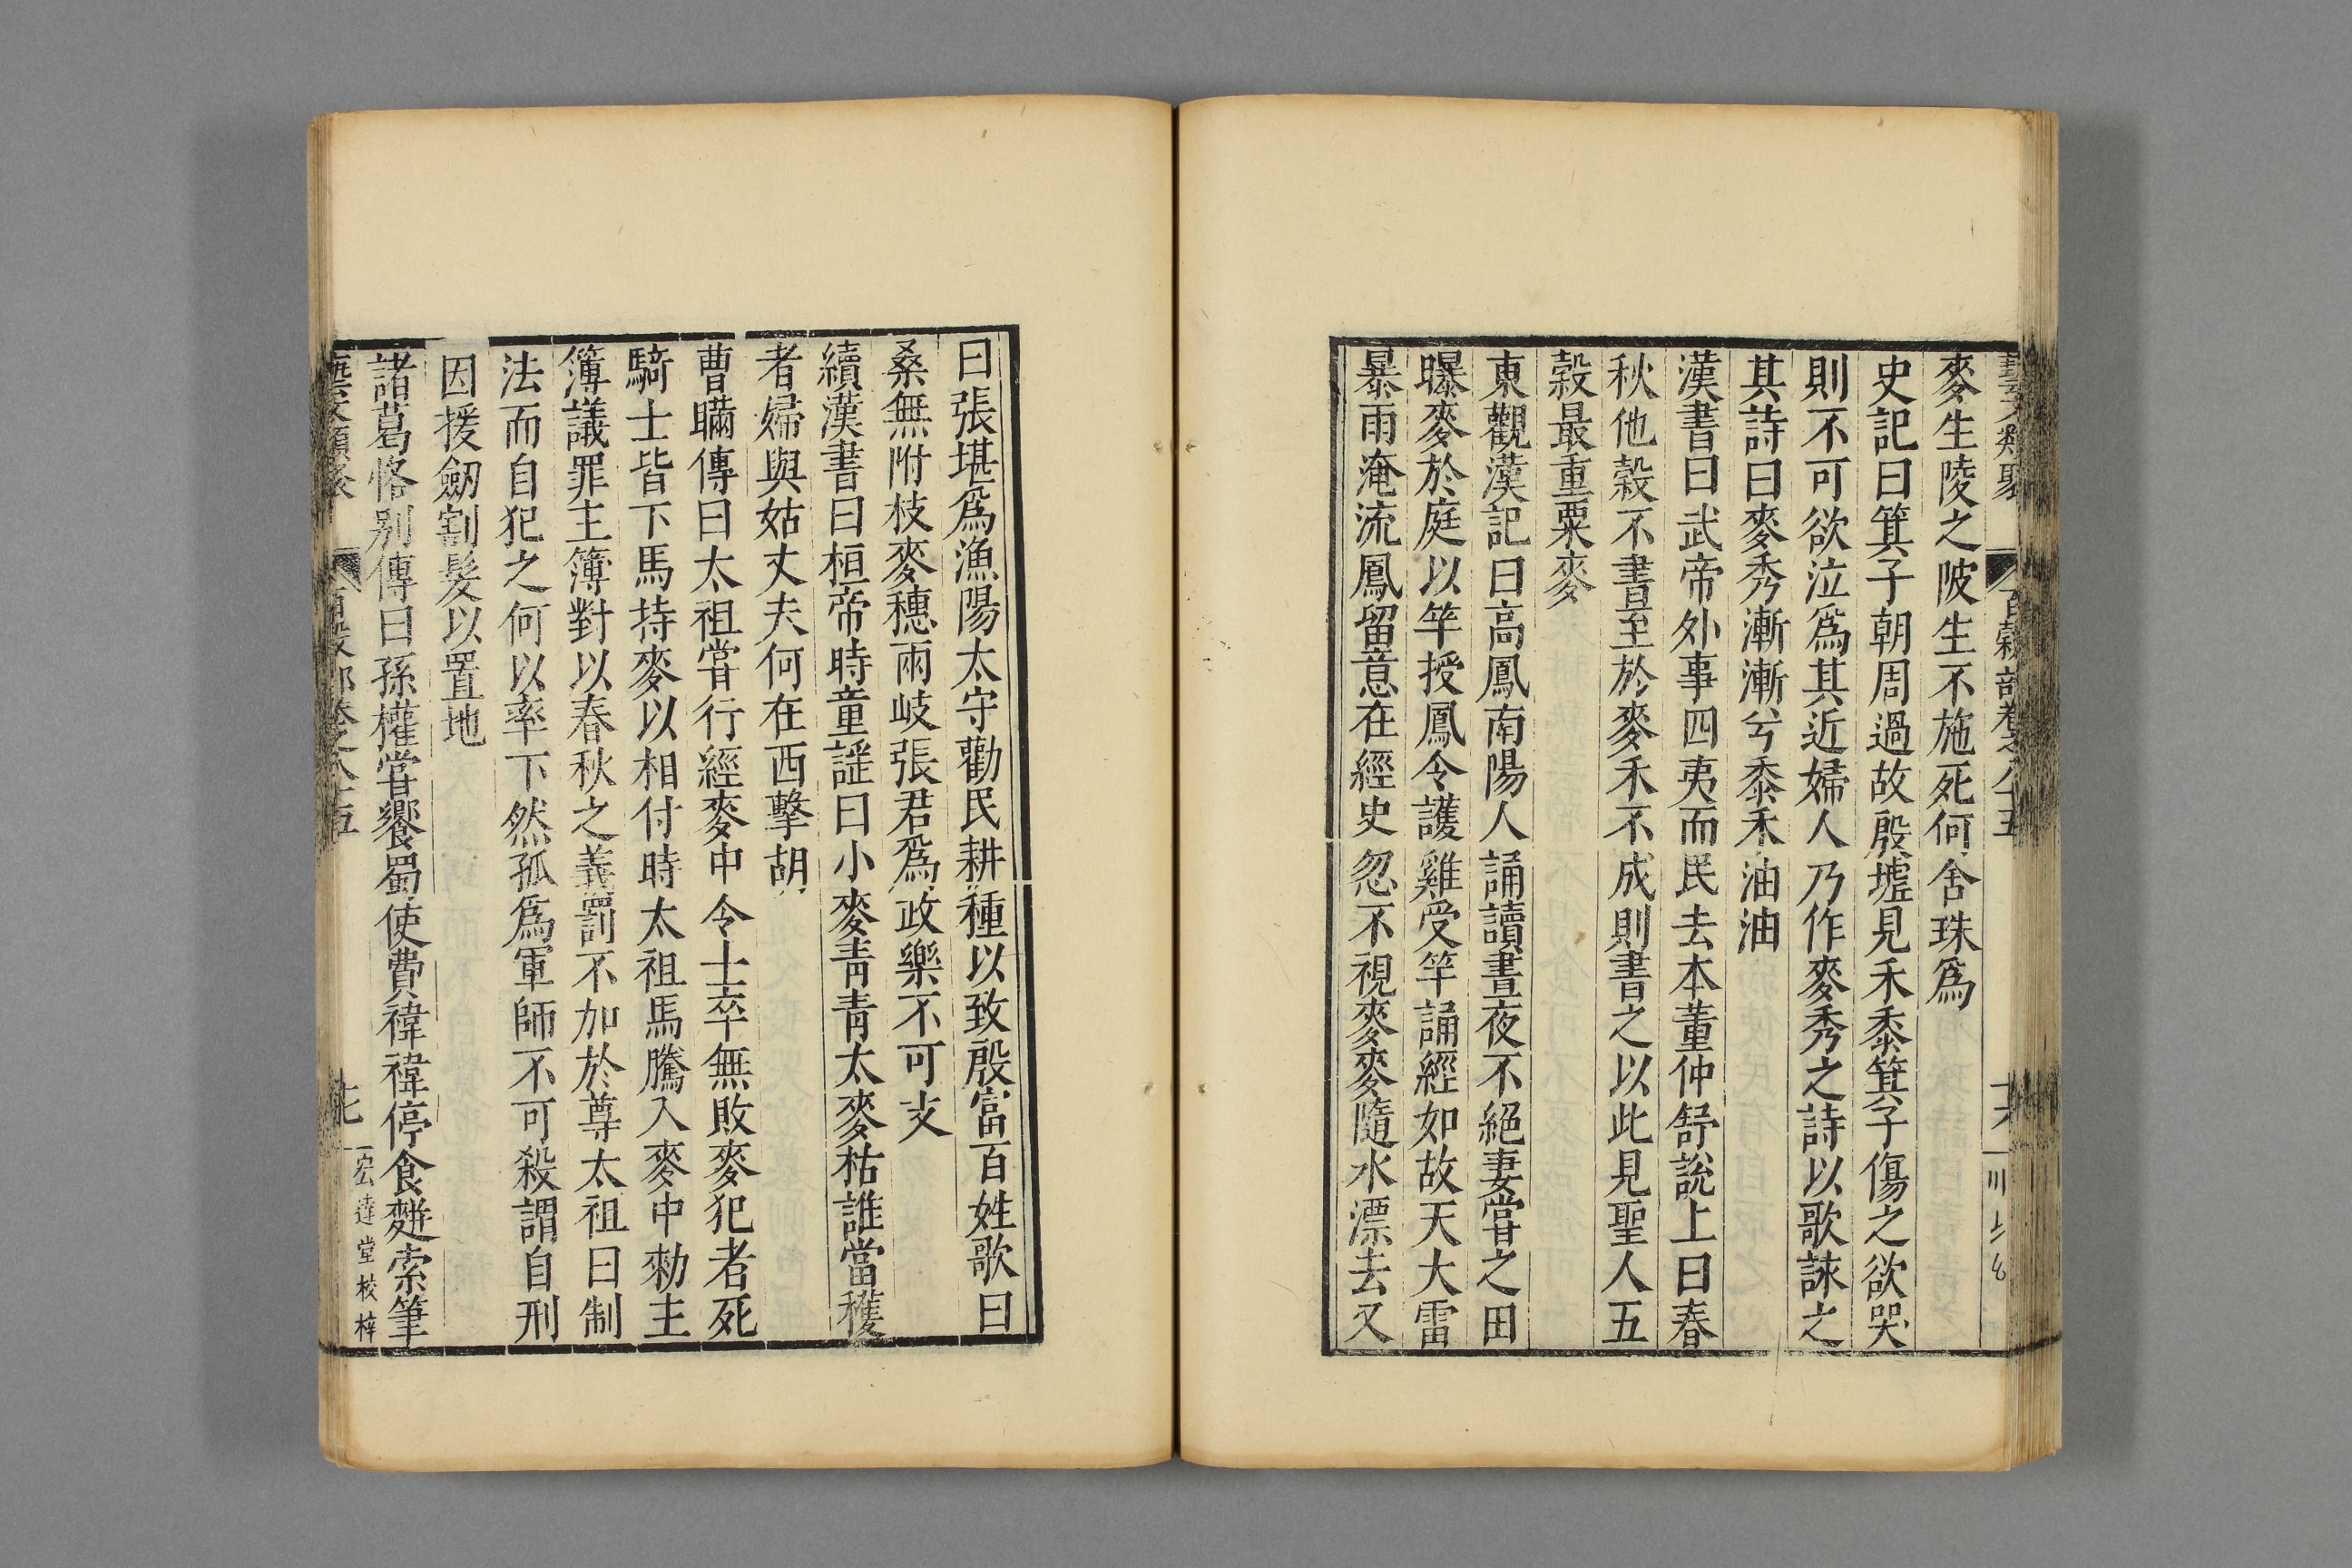 藝文類聚 百穀部卷之八十五 十六
麥生陵之陂生不施死何含珠爲
史記曰箕子朝周過故殷墟見禾黍箕子傷之欲哭
則不可欲泣爲其近婦人乃作麥秀之詩以歌詠之
其詩曰麥秀漸漸兮黍禾油油
漢書曰武帝外事四夷而民去本董仲舒說上曰春
秋他穀不書至於麥禾不成則書之以此見聖人五
穀最重粟麥
東觀漢記曰高鳳南陽人誦讀晝夜不絕妻嘗之田
曝麥於庭以竿授鳳令護雞受竿誦經如故天大雷
暴雨淹流鳳留意在經史忽不視麥麥隨水漂去又
曰張堪爲漁陽太守勸民耕種以致殷富百姓歌曰
桑無附枝麥穗兩岐張君爲政樂不可支
續漢書曰桓帝時童謡曰小麥青青太麥枯誰當穫
者婦與姑丈夫何在西擊胡
曹瞞傳曰太祖嘗行經麥中令士卒無敗麥犯者死
騎士皆下馬持麥以相付時太祖馬騰入麥中勑主
簿議罪主簿對以春秋之義罰不加於尊太祖曰制
法而自犯之何以率下然孤爲軍師不可殺謂自刑
因援劒割髮以置地
諸葛恪别傳曰孫權嘗饗蜀使費禕禕停食麰索筆
藝文類聚 百穀部卷之八十五 十七 宏達堂校梓